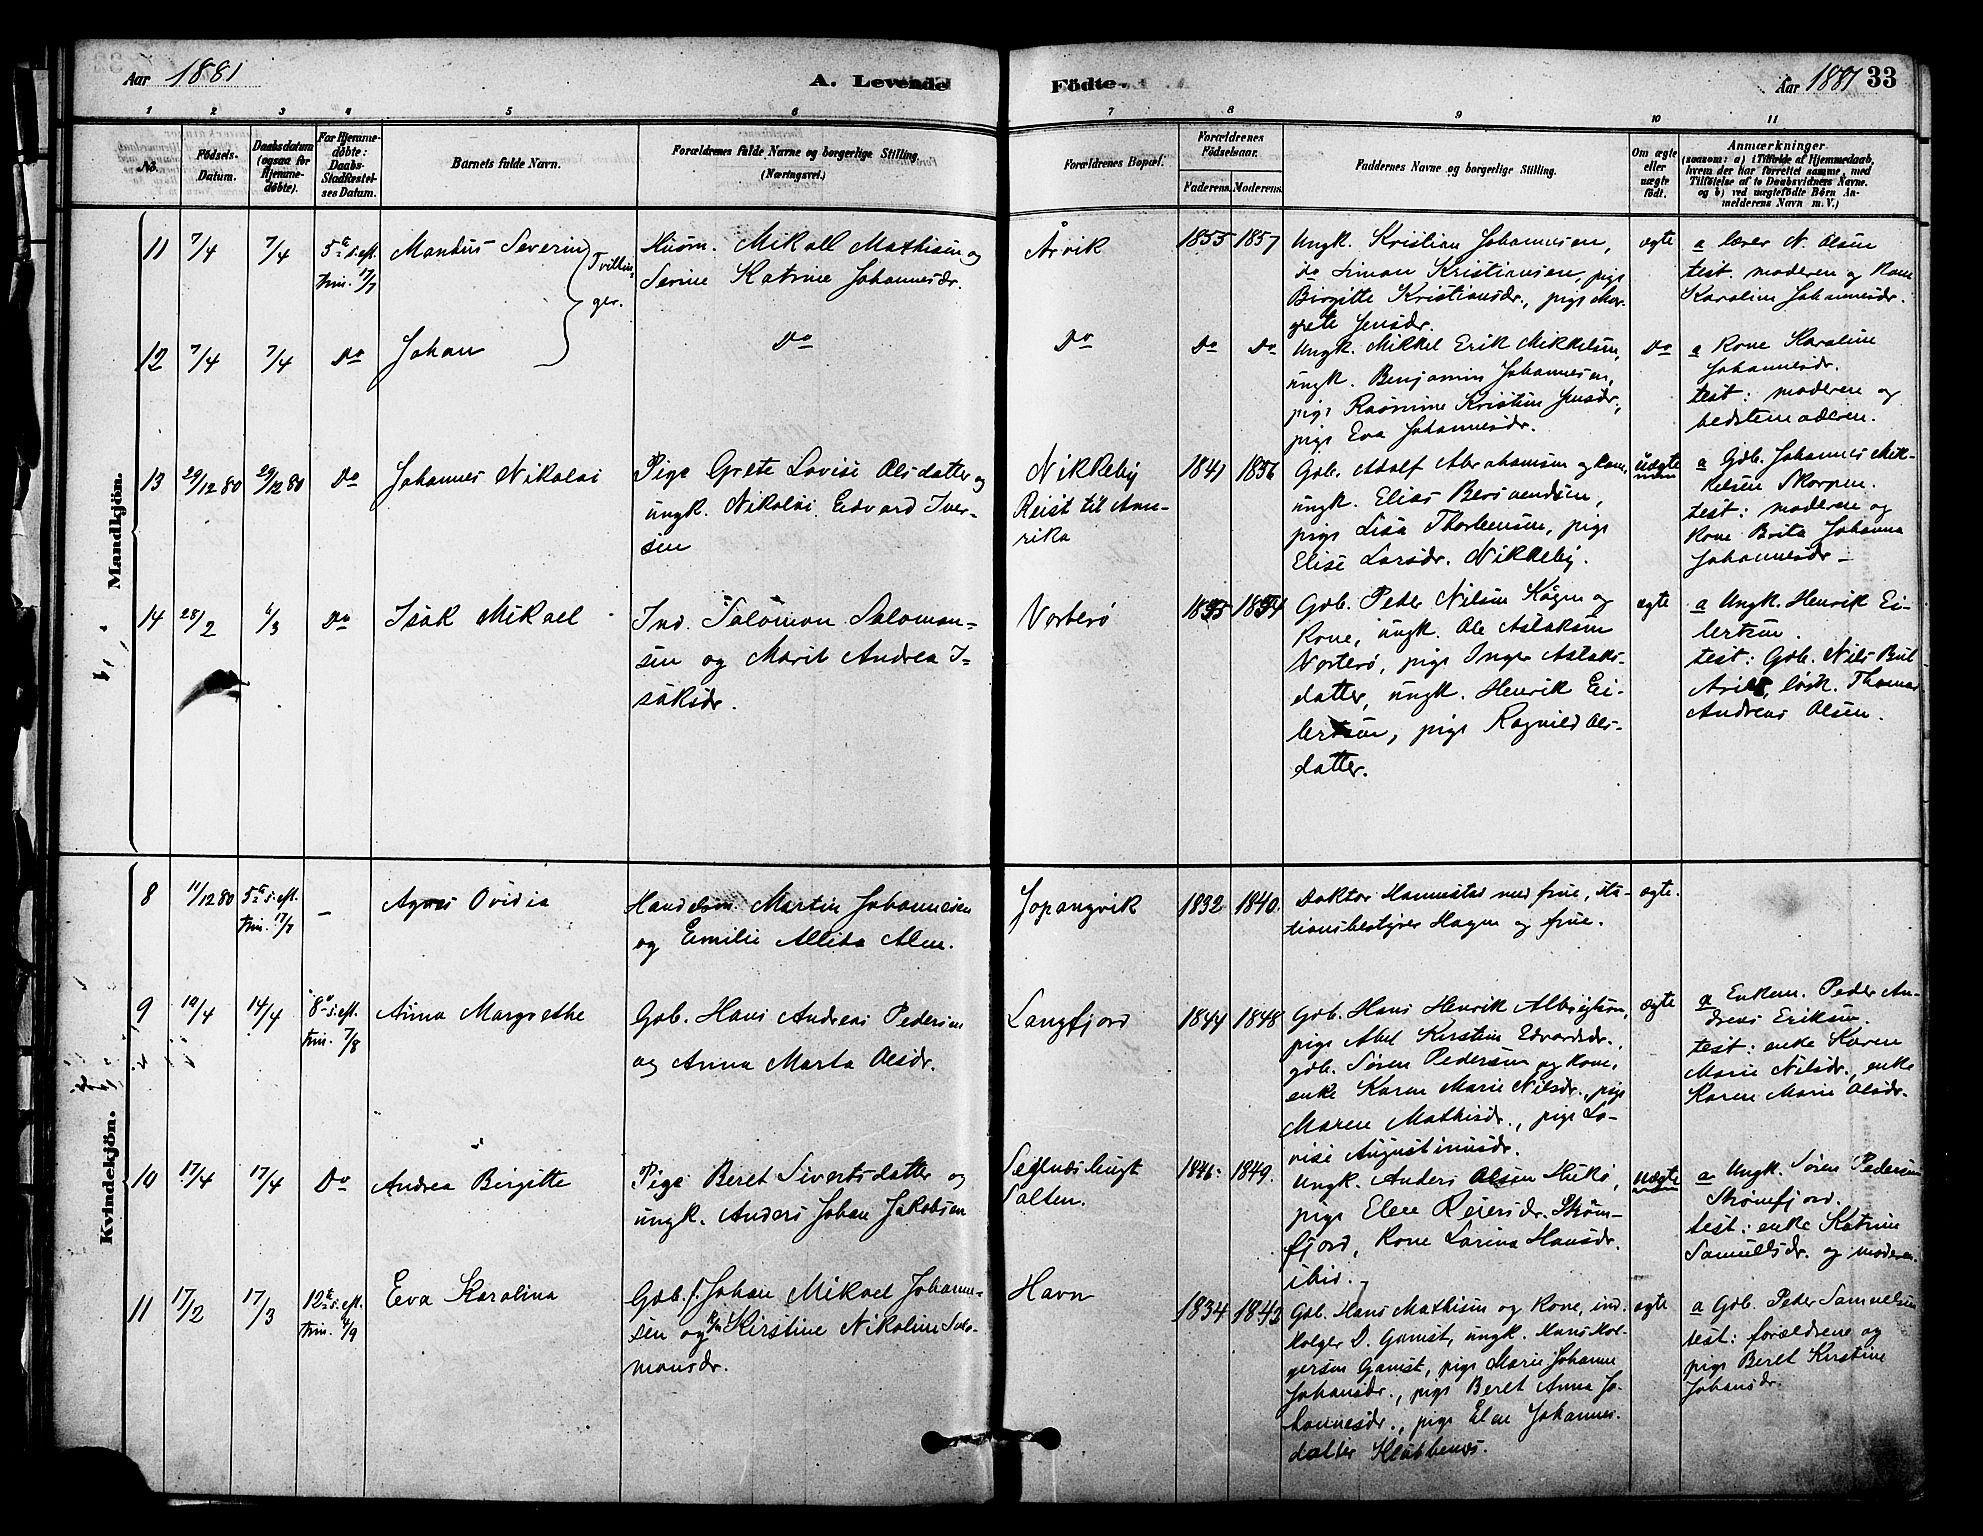 Aar 1881
A. Levende
Födte.
Aar 1881 33
1 2 3 4 5 6 7 8 9 10 11
No.
Födsels-
Datum.
Daabsdatum
(ogsaa for
Hjemme-
døbte).
For Hjemme-
døbte:
Daabs-
Stadfæstel-
ses Datum.
Barnets fulde Navn.
Forældrenes fulde Navne og borgerlige Stilling.
(Næringsvei.)
Forældrenes Bopæl.
Forældrenes
Födselsaar.
Faderens. Moderens.
Faddernes Navne og borgerlige Stilling.
Om ægte
eller
uægte
født.
Anmærkninger
(saasom: a) i Tilfælde af Hjemmedaab,
hvem der har forrettet samme, med
Tilføielse af to Daabsvidners Navne.
og b) ved uægtefødte Börn An-
melderens Navn m. V.)
Mandkjön.
11 7/4 7/4 5te s. eft.
trin. 17/7
Mandus Severin
Tvillin-
ger.
Huusm. Mikall Mathisen og
Serine Katrine Johannesdr.
Årvik
1855 1857
Ungk. Kristian Johannesen,
do Simon Kristiansen, pige
Birgitte Kristiansdr., pige Mar-
grete Jensdr.
ægte
a lærer N. Olsen
test. moderen og kone
Karolina Johannesdr.
12 7/4 7/4 Do
Johan
Do
Do
Do Do
Ungk. Mikkel Erik Mikkelsen,
ungk. Benjamin Johannesen,
pige Rasmine Kristin Jensdr.,
pige Eva Johannesdr.
Do
a Kone Karoline
Johannesdr.
test: moderen og
bedstemoderen.
13 29/12 80 29/12 80 Do
Johannes Nikolai
Pige Grete Lovise Olsdatter og
ungk. Nikolai Edvard Iver-
sen
Nikkeby
Reist til Ame-
rika
1841 1856
Gdb. Adolf Abrahamsen og kone,
ungk. Elias Bersvendsen,
pige Lisa Thorbensen, pige
Elise Larsdr. Nikkeby.
uægte
a Gdb. Johannes Mik-
kelsen Skorpen.
test: moderen og
Kone Brita Johanna
Johannesdr –
14 28/2 6/3 Do
Isak Mikael
Ind. Salomon Salomon-
sen og Marit Andrea I-
saksdr.
Vorterø
1855 1854
Gdb. Peder Nilsen Kågen og
Kone, ungk. Ole Aslaksen
Vorterø, pige Inger Aslaks-
datter, ungk. Henrik Ei-
lertsen, pige Ragnild Ols-
datter.
ægte
a Ungk. Henrik Ei-
lertsen.
test: Gdb. Nils
løsk. Thomas
Andreas Olsen.
Kvindekjön.
8 11/12 80 5te s. eft.
trin. 17/7
–
Agnes Ovidia
Handelsm. Martin Johannesen
og Emilie Allida Alm.
Jopangvik
1832 1840.
Doktor Hannestad med frue, sta-
tionsbestyrer Hagen og frue.
ægte.
9 10/4 14/4 8de s. eft.
trin. 7/8
Anna Margrethe
Gdb. Hans Andreas Pedersen
og Anna Marta Olsdr.
Langfjord
1844 1848
Gdb. Hans Henrik Albrigtsen,
pige Abel Kerstin Edvardsdr.,
gdb. Søren Pedersen og kone,
enke Karen Marie Nilsdr., pige
Maren Mathisdr., pige Lo-
vise Augustinusdr.
ægte
a Enkem. Peder An-
dreas Eriksen.
test: enke Karen
Marie Nilsdr., enke
Karen Marie Olsdr.
10 17/4 17/4 Do
Andrea Birgitte
Pige Beret Sivertsdatter og
ungk. Anders Johan Jakobsen
Seglnesbugt
Salten.
1846. 1849.
Ungk. Anders Olsen
pige Elen Reiersdr. Strøm-
fjord, Kone Larina Hansdr.
ibid.
uægte
a Ungk. Søren Pedersen
Strømfjord.
test: enke Katrine
Samuelsdr. og moderen
11 17/2 17/3 12te s. eft.
trin. 4/9
Eva Karolina
Gdb. f. Johan Mikael Johann-
sen og Kirstine Nikoline Salo-
monsdr.
Havn
1834 1843
Gdb. Hans Mathisen og Kone, ind.
Holger D. Gamst, ungk. Hans Hol-
gersen Gamst, pige Marie Johanne
Johansdr., pige Beret Anna Jo-
hannesdr., pige Elen Johannes-
datter Klubbenes.
ægte
a Gdb. Peder Samuelsen
test: forældrene og
pige Beret Kirstine
Johansdr.